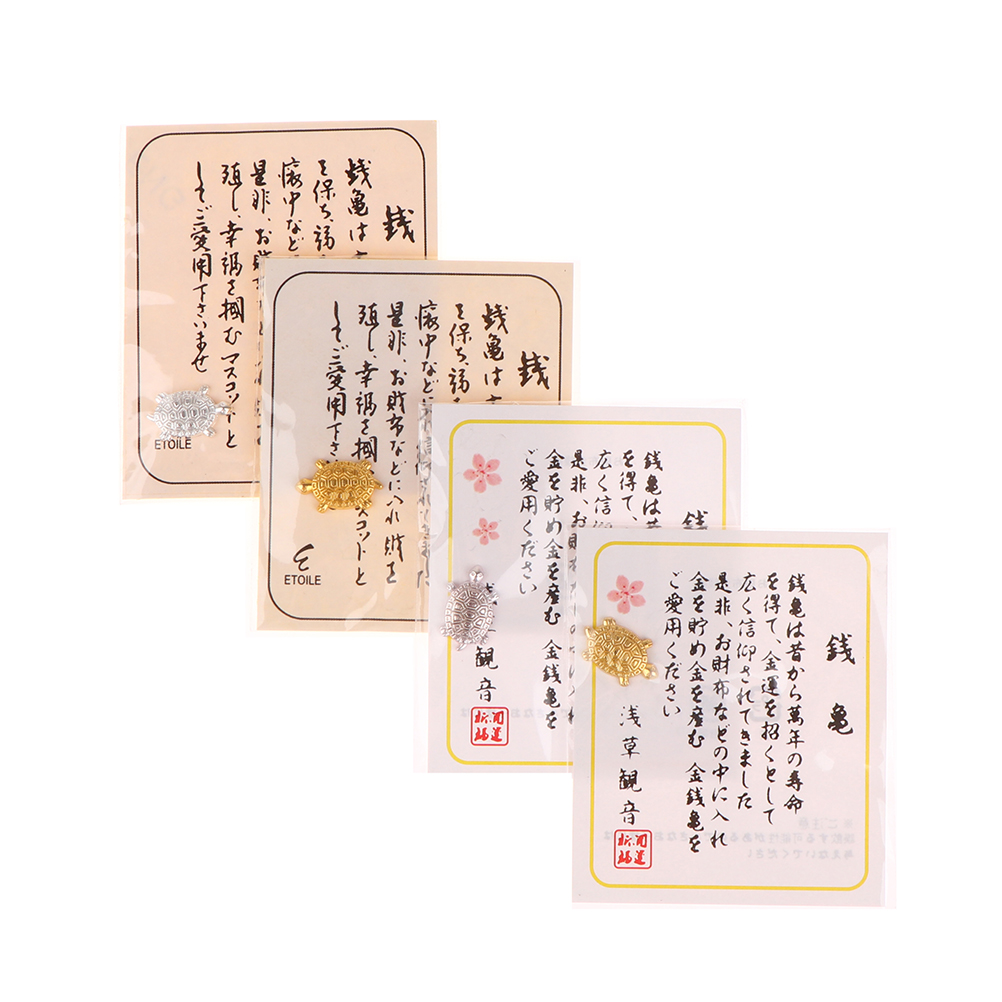 銭
銭亀は
を保ち、福
懐中など
是非、お財
殖し、幸福を掴むマスコットと
してご愛用下さいませ
ETOILE
銭
銭亀は
を保ち、福
懐中など
是非、お財布などに入れ財を
殖し、幸福を掴 スコットと
してご愛用下さ
ETOILE
銭
銭亀は昔
を得て、
広く信仰
是非、お財布
金を貯め金を産む 金銭亀を
ご愛用ください
観音
開運
祈福
銭亀
銭亀は昔から萬年の寿命
を得て、金運を招くとして
広く信仰されてきました
是非、お財布などの中に入れ
金を貯め金を産む 金銭亀を
ご愛用ください
浅草観音
開運
祈福